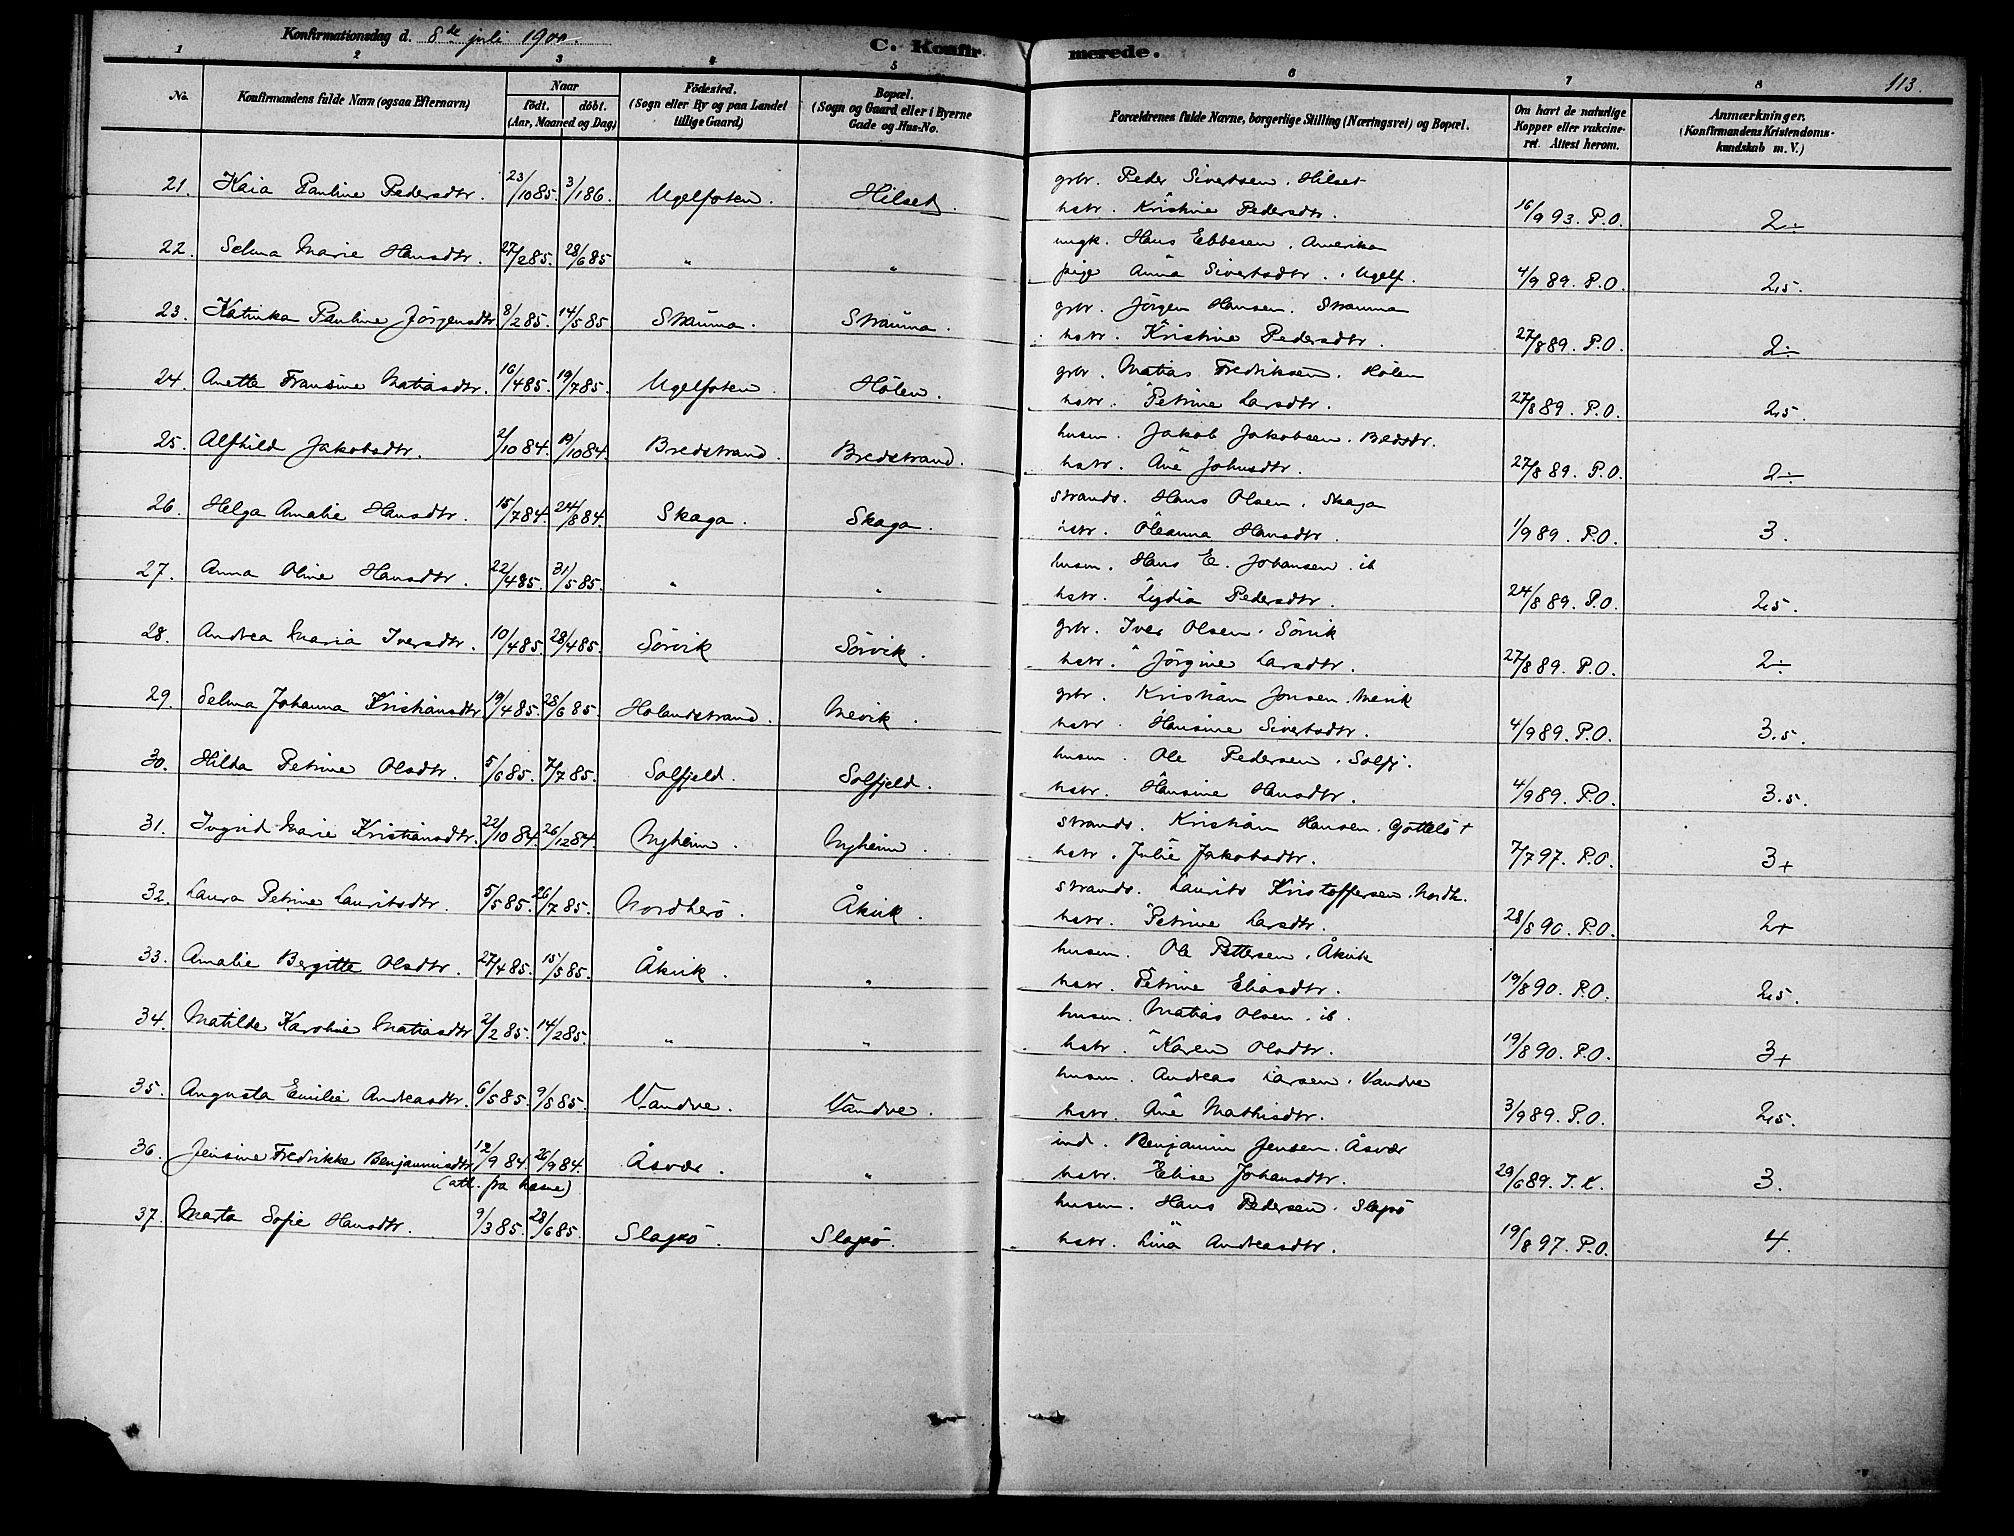 Konfirmationsdag d. 8de juli 1900.
C. Konfirmerede.
113.
1 2 3 4 5 6 7 8
No. Konfirmandens fulde Navn (ogsaa Efternavn) Naar födt. döbt. (Aar, Maaned og Dag) Födested. (Sogn eller By og paa Landet tillige Gaard) Bopæl. (Sogn og Gaard eller i Byerne Gade og Hus-No. Forældrenes fulde Navne, borgerlige Stilling (Næringsvei) og Bopæl. Om havt de naturlige Kopper eller vakcineret. Attest herom. Anmærkninger. (Konfirmandens Kristendomskundskab m. V.)
grbr. Peder Sivertsen. Hilset
21. Kaia Pauline Pedersdtr. 23/10 85. 3/1 86. Ugelfoten. Hilset. hstr. Kristine Pedersdtr. 16/9 93. P.O. 2÷
ungk. Hans Ebbesen. Amerika
22. Selma Marie Hansdtr. 27/2 85. 28/6 85 " " pige Anna Sivertsdtr. Ugelf. 4/9 89. P.O. 2,5.
grbr. Jörgen Hansen. Strauma
23. Katinka Pauline Jörgensdtr 8/2 85. 14/5 85 Strauma. Strauma. hstr. Kristine Pedersdtr. 27/8 89. P.O. 2÷
grbr. Matias Fredriksen. Hölen
24. Anette Fransine Matiasdtr. 16/4 85. 19/7 85. Ugelfoten. Hölen. hstr. Petrine Larsdtr. 27/8 89. P.O. 2,5
husm. Jakob Jakobsen. Bredstr.
25. Alfhild Jakobsdtr. 2/10 84. 19/10 84. Bredstrand. Bredstrand. hstr. Ane Johnsdtr. 27/8 89. P.O. 2÷
strands. Hans Olsen. Skaga
26. Helga Amalie Hansdtr. 15/7 84. 24/8 84. Skaga. Skaga. hstr. Oleanna Hansdtr. 1/9 89. P.O. 3.
husm. Hans E. Johansen. ib
27. Anna Oline Hansdtr. 22/4 85. 31/5 85. " " hstr. Lydia Pedersdtr. 24/8 89. P.O. 2,5.
grbr. Iver Olsen. Sörvik
28. Andrea Maria Iversdtr. 10/4 85. 28/4 85. Sörvik Sörvik. hstr. Jörgine Larsdtr. 27/8 89. P.O. 2÷
grbr. Kristian Jonsen. Mevik
29. Selma Johanna Kristiansdtr 19/4 85. 28/6 85. Holandstrand. Mevik. hstr. Hansine Sivertsdtr. 4/9 89. P.O. 3.5.
husm. Ole Pedersen. Solfj.
30. Hilda Petrine Olsdtr. 5/6 85. 7/7 85. Solfjeld. Solfjeld. hstr. Hansine Hansdtr. 4/9 89. P.O. 3.5
strands. Kristian Hansen.
31. Ingrid Marie Kristiansdtr. 22/10 84. 26/12 84. Nyheim. Nyheim. hstr. Julie Jakobsdtr. 7/7 97. P.O. 3+
strands. Laurits Kristoffersen. Nordh.
32. Laura Petrine Lauritsdtr. 5/5 85. 26/7 85. Nordherö. Åkvik. hstr. Petrine Larsdtr. 28/8 90. P.O. 2+
husm. Ole Pettersen. Åkvik
33. Amalie Bergitte Olsdtr. 27/4 85. 15/5 85. Åkvik. " hstr. Petrine Eliasdtr. 19/8 90. P.O. 2,5.
husm. Matias Olsen. ib.
34. Matilde Karoline Matiasdtr 2/2 85. 14/2 85. " " hstr. Karen Olsdtr. 19/8 90. P.O. 3+
husm. Andreas Larsen. Vandve
35. Augusta Emilie Andreasdtr. 6/5 85. 9/8 85. Vandve. Vandve. hstr. Ane Mathisdtr. 3/9 89. P.O. 2,5.
ind. Benjamin Jensen. Åsvær
36. Jensine Fredrikke Benjaminsdtr 12/9 84. 26/9 84. Åsvær. " hstr. Elise Johansdtr. 29/6 89. J.K. 3.
(att. fra )
husm. Hans Pedersen. Slapö
37. Marta Sofie Hansdtr. 9/3 85. 28/6 85. Slapö. Slapö. hstr. Lina Andreasdtr. 19/8 97. P.O. 4.